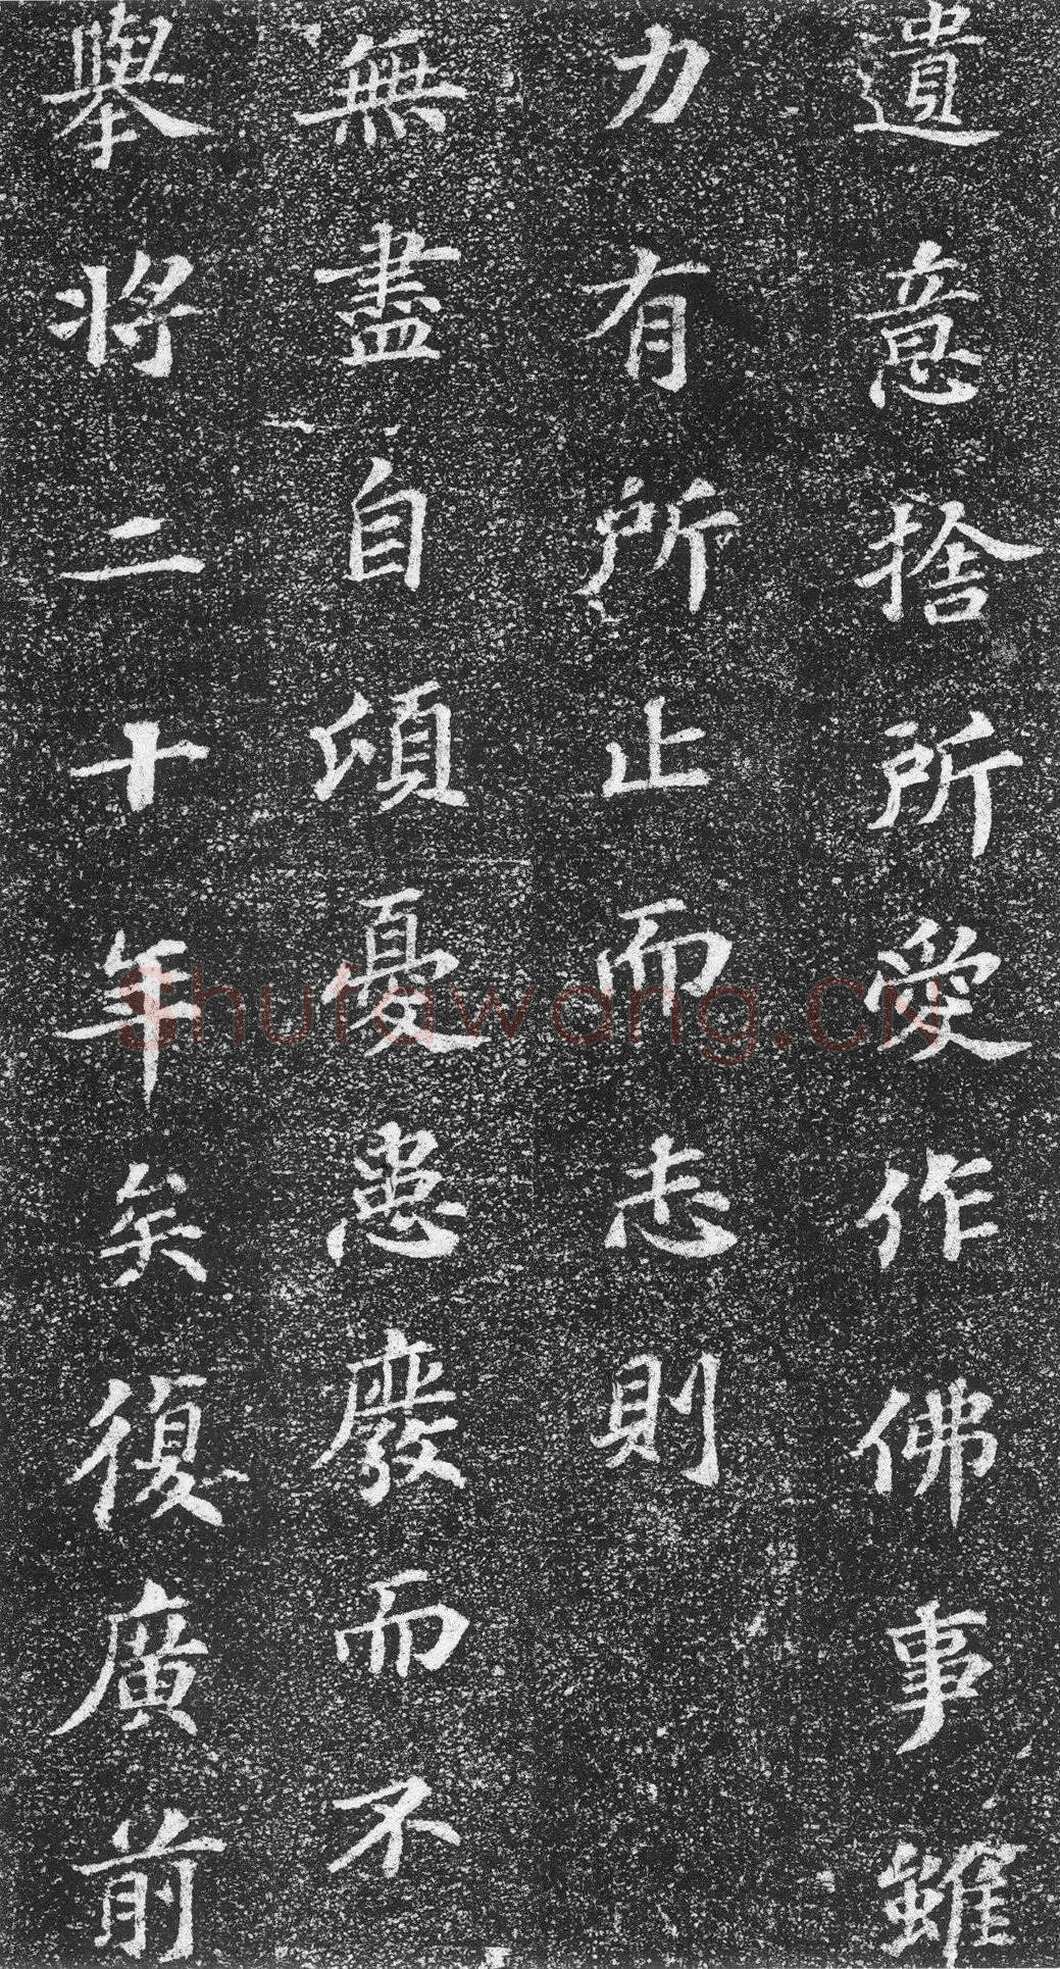 遺意捨所愛作佛事雖
力有所止而志則
無盡自頃憂患廢而不
舉將二十年矣復廣前
shufawang.cn